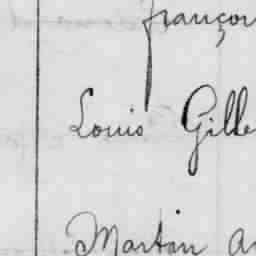 françoi
Louis Gille
Martin a